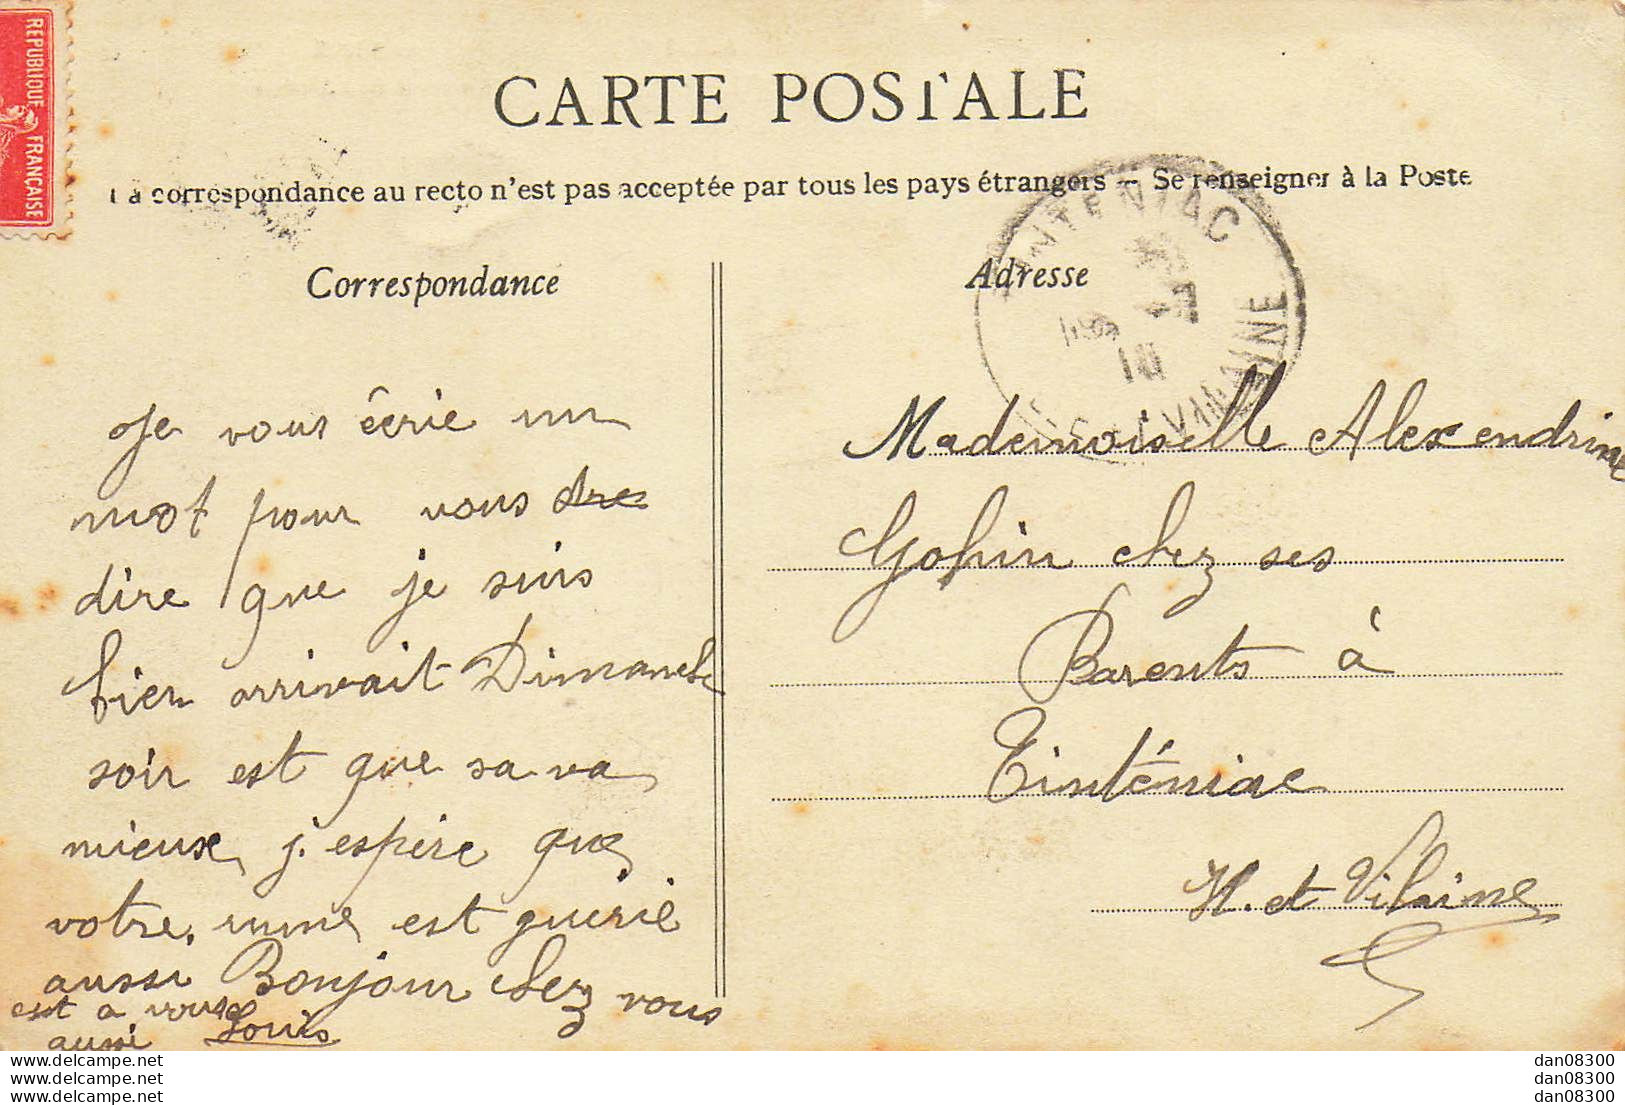 REPUBLIQUE FRANCAISE
CARTE POSTALE
La correspondance au recto n'est pas acceptée par tous les pays étrangers — Se renseigner à la Poste
TINTENIAC
VILAINE
10
Correspondance
Adresse
Je vous écrie un
mot pour vous dre
dire que je suis
bien arrivait Dimanche
soir est que sa va
mieuse, j. espère que
votre, est guérie
aussi Bonjour chez vous
est a vouse
aussi Louis
Mademoiselle Alexendrine
Gohin chez ses
Parents à
Tinténiac
H. et Vilaine
delcampe.net
delcampe.net
delcampe.net
dan08300
dan08300
dan08300